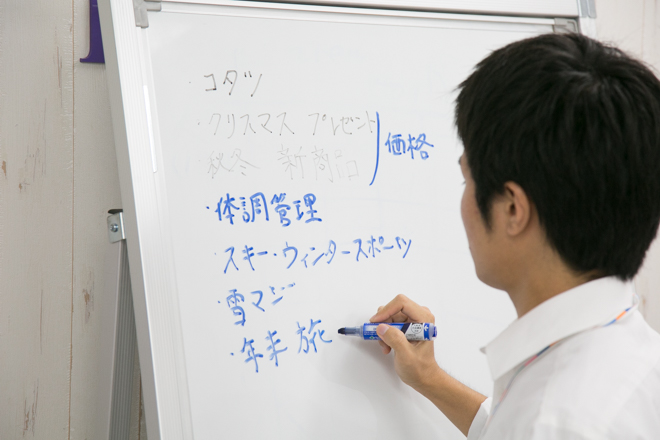 ・コタツ
・クリスマス プレゼント
・秋冬 新商品
価格
・体調管理
・スキー・ウィンタースポーツ
・雪マジ
・年末 旅